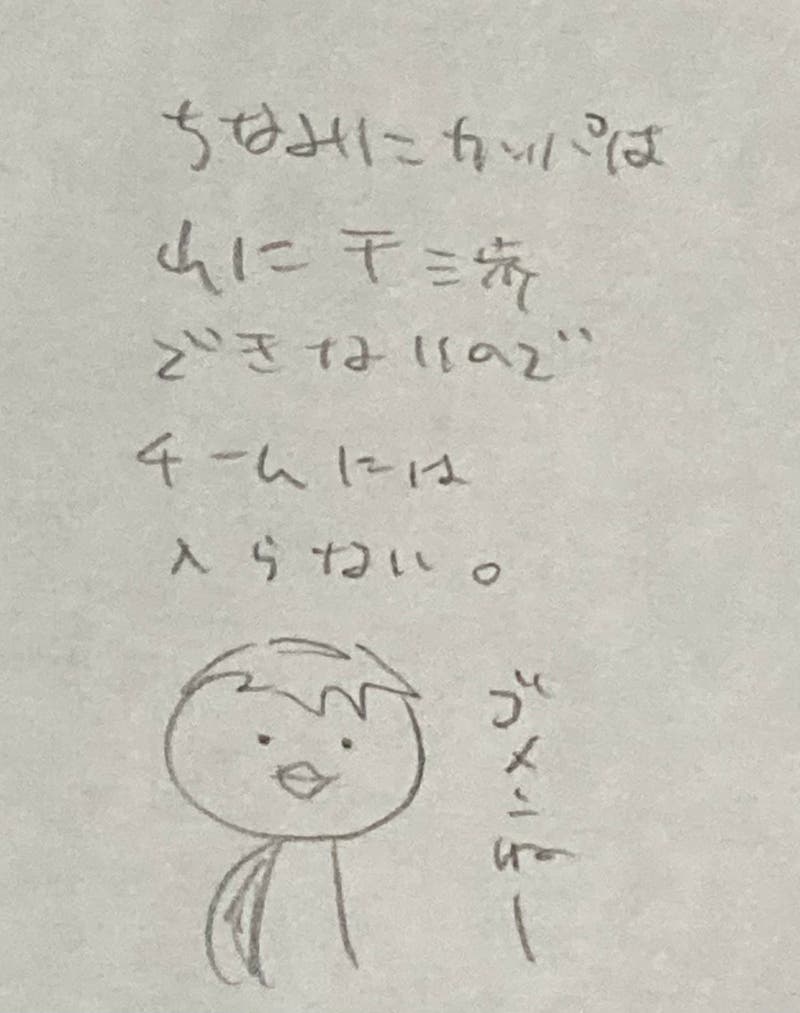 ちなみにカッパは
山に干渉
できないので
チームには
入らない。
ゴメンねー